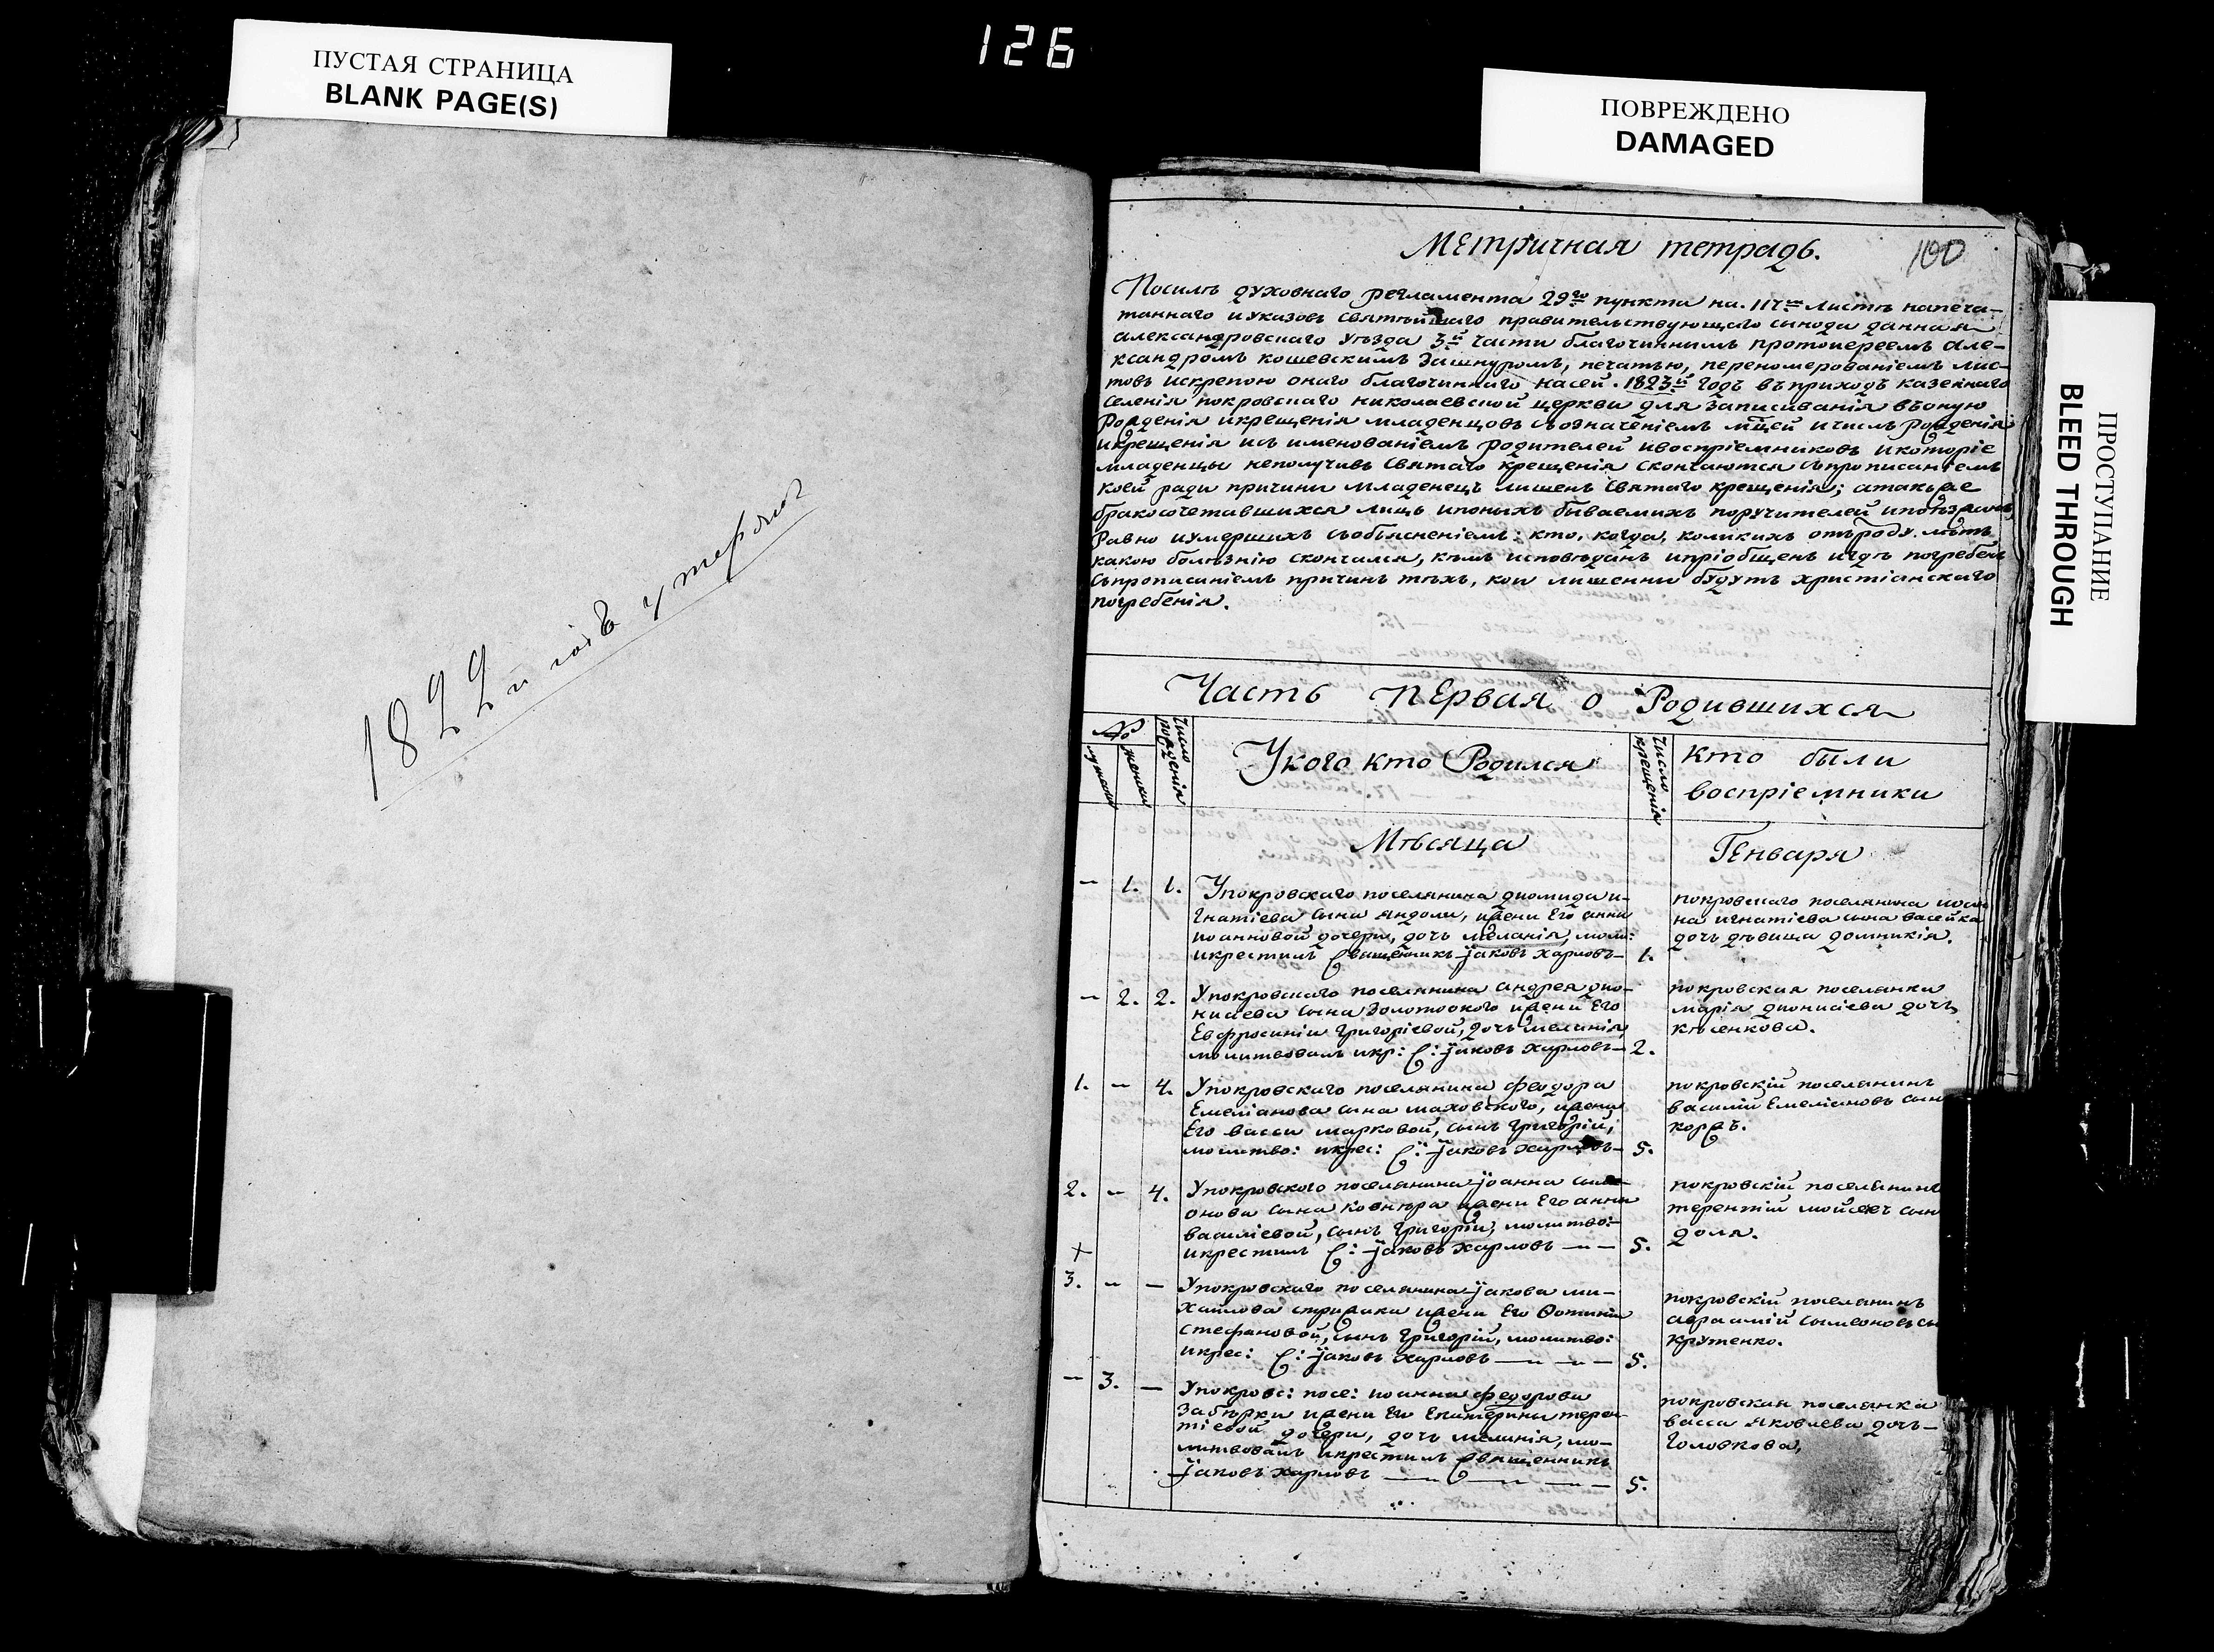 126
ПУСТАЯ СТРАНИЦА
BLANK PAGE(S)
ПОВРЕЖДЕНО
DAMAGED
ПРОСТУПАНИЕ
BLEED THROUGH
1822й годъ утерянъ
Метричная тетрадь.
100
Посилѣ духовнаго регламента 29го пункта на. 117мъ листѣ напеча-
таннаго иуказовъ святѣйшаго правительствующаго сѵнода данная
александровскаго уѣзда 3й части благочиннымъ протоиереемъ але-
ксандромъ кошевскимъ зашнуромъ, печатью, переномерованіемъ лис-
товъ искрепою онаго благочиннаго насей. 1823й годъ въприходъ казеннаго
селенія покровскаго николаевской церкви для записиванія въоную
Рожденія икрещенія младенцовъ съозначеніемъ мцей ичислъ рожденія
икрещенія исъ именованіемъ родителей ивоспріемниковъ икоторіе
младенцы неполучивъ святаго крещенія скончаются съпрописаніемъ
коей ради причини младенецъ лишенъ святаго крещенія; атакъже
бракосочетавшихся лицъ ипонихъ бываемихъ поручителей
Равно иумершихъ собъясненіемъ: кто, когда, коликихъ отъроду лѣтъ
какою болѣзнію скончался, кѣмъ исповѣданъ ипріобщенъ игдѣ погребенъ
съпрописаніемъ причинъ тѣхъ, кои лишенни будутъ христіанскаго
погребенія.
Часть первая о Родившихся
№
мужеска
женска
Число рожденія
Укого кто Родился
Число крещенія
Кто были
воспріемники
Мѣсяца
Генваря
– 1. 1.
Упокровскаго поселянина диомида и-
гнатіева сына яндоли, ижени Его анни
иоанновой дочери, дочь меланія, моли:
икрестилъ священникъ Іаковъ Харловъ – 1.
покровскаго поселянина
на игнатіева сына васейка
дочь дѣвица домникія.
– 2. 2.
Упокровскаго поселянина андрея дио-
нисіева сына золотоокого ижени Его
Евфросиніи григоріевой, дочь меланія
молитвовалъ икр: С: Іаковъ Харловъ – 2.
покровская поселянка
марія дионисіева дочь
кѣсенкова.
1. – 4.
Упокровскаго поселянина феодора
Емеліанова сына маховского, ижени
Его васси марковой, сынъ григорій,
молитво: икрес: С: Іаковъ Харловъ – 5.
покровскій поселянинъ
василій Емеліановъ сын
коржъ.
2. – 4.
Упокровского поселянина Іоанна сим-
онова сына ковнира ижени Его анни
василіевой, сынъ григорій, молитво:
икрестилъ С: Іаковъ Харловъ – – 5.
покровскій поселянинъ
терентій мойсеевъ сын
доля.
+
3. – –
Упокровскаго поселянина Іакова ми-
хайлова стрижака ижени Его Фотинии
стефановой, сынъ григорій, молитво:
икрес: С: Іаковъ Харловъ – – – 5.
покровскій поселянинъ
авраамій симеоновъ сы
крутенко.
– 3. –
Упокровс: посе: иоанна феодорова
забѣрки ижени Его Екатерини терен-
тіевой дочери, дочь меланія, мо-
литвовалъ икрестилъ священникъ
Іаковъ Харловъ – – – – 5.
покровская поселянка
васса яковлева дочь-
головкова,